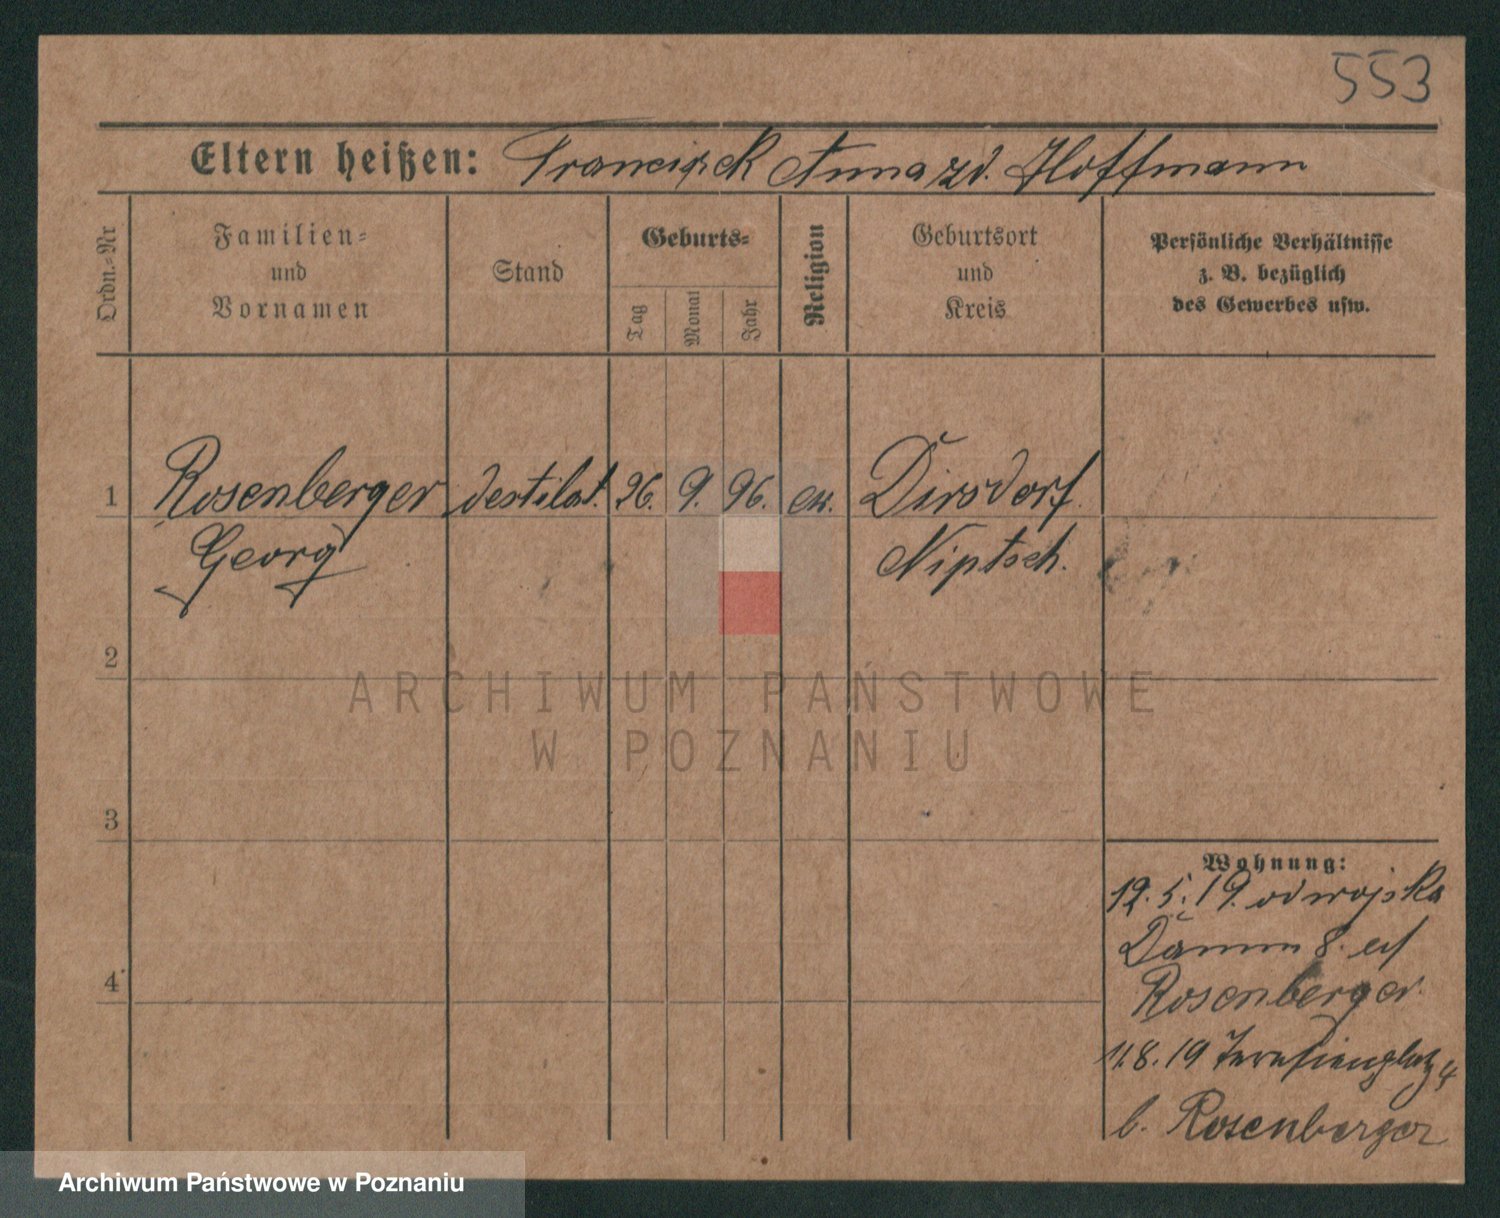 553
Eltern heißen: Franciszek Anna zd. Hoffmann
Ordn.-Nr
Familien-
und
Vornamen
Stand
Geburts-
Tag
Monat
Jahr
Religion
Geburtsort
und
Kreis
Persönliche Verhältnisse
z. B. bezüglich
des Gewerbes usw.
1 Rosenberger destilat. 26. 9. 96. ew. Dirsdorf.
Georg Niptsch.
2
ARCHIWUM PAŃSTWOWE
W POZNANIU
3
Wohnung:
19. 5. 19. od wojska
Damm 8.
Rosenberger.
4
11.8.19 4
b. Rosenberger
Archiwum Państwowe w Poznaniu